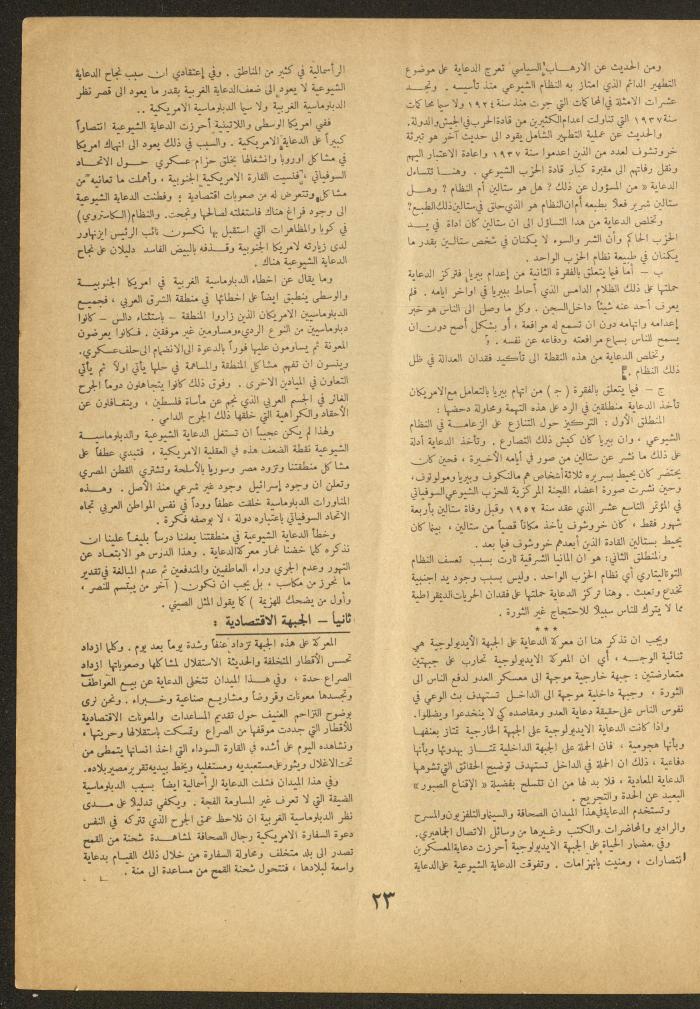 ومن الحديث عن الارهاب السياسي تعرج الدعاية على موضوع
التطهير الدائم الذي امتاز به النظام الشيوعي منذ تأسيسه . ونجد
عشرات الامثلة في المحاكمات التي جرت منذ سنة ١٩٢٤ ولا سيما محاكمات
سنة ١٩٣٧ التي تناولت اعدام الكثيرين من قادة الحرب في الجيش والدولة.
والحديث عن عملية التطهير الشامل يقود الى حديث آخر هو تبرئة
خروتشوف لعدد من الذين اعدموا سنة ١٩٣٧ واعادة الاعتبار اليهم
ونقل رفاتهم الى مقبرة كبار قادة الحزب الشيوعي . وهنا تتساءل
الدعاية « من المسؤول عن ذلك ? هل هو ستالين أم النظام ? وهل
ستالين شرير فعلاً بطبعه أم ان النظام هو الذي خلق في ستالين ذلك الطبع?
وتخلص الدعاية من هذا التساؤل الى ان ستالين كان اداة في يد
الحزب الحاكم وأن الشر والسوء لا يكمنان في شخص ستالين بقدر ما
يكمنان في طبيعة نظام الحزب الواحد .
ب – أما فيما يتعلق بالفقرة الثانية من إعدام بيريا, فتركز الدعاية
حملتها على ذلك الظلام الدامس الذي أحاط ببيريا في اواخر ايامه . فلم
يعرف أحد عنه شيئاً داخل السجن . وكل ما وصل الى الناس هو خبر
إعدامه واتهامه دون ان تسمع له مرافعة ، أو بشكل أصح دون ان
يسمح للناس بسماع مرافعته ودفاعه عن نفسه .
وتخلص الدعاية من هذه النقطة الى تأكيد فقدان العدالة في ظل
ذلك النظام .
ج – فيما يتعلق بالفقرة ( ج ) من اتهام بيريا بالتعامل مع الامريكان
تأخذ الدعاية منطلقين في الرد على هذه التهمة ومحاولة دحضها :
المنطلق الأول : التركيز حول التنازع على الزعامة في النظام
الشيوعي ، وان بيريا كان كبش ذلك التصارع . وتأخذ الدعاية أدلة
على ذلك ما نشر عن ستالين من صور في أيامه الأخيرة ، فحين كان
يحتضر كان يحيط بسريره ثلاثة أشخاص هم مالنكوف وبيريا ومولوتوف،
وحين نشرت صورة اعضاء اللجنة المركزية للحزب الشيوعي السوفياتي
في المؤتمر التاسع عشر الذي عقد سنة ١٩٥٢ وقبل وفاة ستالين بأربعة
شهور فقط ، كان خروشوف يأخذ مكاناً قصياً من ستالين ، بينما كان
يحيط بستالين القادة الذين أبعدهم خروشوف فيما بعد .
والمنطلق الثاني: هو ان المانيا الشرقية ثارت بسبب تعسف النظام
التوتاليتاري أي نظام الحزب الواحد . وليس بسبب وجود يد اجنبية
تخدع وتعبث . وهنا تركز الدعاية حملتها على فقدان الحريات الديمقراطية
مما لا يترك للناس سبيلا للاحتجاج غير الثورة .
* * *
ويجب ان تذكر هنا ان معركة الدعاية على الجبهة الأيديولوجية هي
ثنائية الوجه ، أي ان المعركة الايديولوجية تحارب على جبهتين
متعارضتين : جبهة خارجية موجهة الى معسكر العدو لدفع الناس الى
الثورة ، وجبهة داخلية موجهة الى الداخل تستهدف بث الوعي في
نفوس الناس على حقيقة دعاية العدو ومقاصده كي لا ينخدعوا ويضللوا.
واذا كانت الدعاية الايديولوجية على الجبهة الخارجية تمتاز بعنفها
وبأنها هجومية ، فان الحملة على الجبهة الداخلية تمتاز بهدوئها وبأنها
دفاعية ، ذلك ان الحملة في الداخل تستهدف توضيح الحقائق التي تشوهها
الدعاية المعادية ، فلا بد لها من ان تتسلح بفضيلة « الإقناع الصبور »
البعيد عن الحدة والتجريح .
وتستخدم الدعاية في هذا الميدان الصحافة والسينما والتلفزيون والمسرح
والراديو والمحاضرات والكتب وغيرها من وسائل الاتصال الجماهيري.
وفي مضمار الحياة على الجبهة الايديولوجية أحرزت دعاية المعسكرين
انتصارات ، ومنيت بانهزامات . وتفوقت الدعاية الشيوعية على الدعاية
الرأسمالية في كثير من المناطق . وفي إعتقادي ان سبب نجاح الدعاية
الشيوعية لا يعود الى ضعف الدعاية الغربية بقدر ما يعود الى قصر نظر
الدبلوماسية الغربية ولا سيما الدبلوماسية الامريكية ..
ففي امريكا الوسطى واللاتينية أحرزت الدعاية الشيوعية انتصاراً
كبيراً على الدعاية الامريكية . والسبب في ذلك يعود الى انهماك امريكا
في مشاكل اوروبا وانشغالها بخلق حزام عسكري حول الاتحاد
السوفياتي ، فنسيت القارة الامريكية الجنوبية ، وأهملت ما تعانيه من
مشاكل وتتعرض له من صعوبات اقتصادية ؛ وفطنت الدعاية الشيوعية
الى وجود فراغ هناك فاستغلته لصالحها ونجحت. والنظام (الكاستروي)
في كوبا والمظاهرات التي استقبل بها نكسون نائب الرئيس ايزنهاور
لدى زيارته لامريكا الجنوبية وقذفه بالبيض الفاسد دليلان على نجاح
الدعاية الشيوعية هناك .
وما يقال عن اخطاء الدبلوماسية الغربية في امريكا الجنوبية
والوسطى ينطبق ايضاً على اخطائها في منطقة الشرق العربي ، فجميع
الدبلوماسيين الامريكان الذين زاروا المنطقة – باستثناء دالس – كانوا
دبلوماسيين من النوع الرديء ومساومين غير موفقين . فكانوا يعرضون
المعونة ثم يساومون عليها فوراً بالدعوة الى الانضمام الى حلف عسكري.
وينسون ان تفهم مشاكل المنطقة والمساهمة في حلها يأتي اولاً ثم يأتي
التعاون في الميادين الاخرى . وفوق ذلك كانوا يتجاهلون دوماً الجرح
الغائر في الجسم العربي الذي نجم عن مأساة فلسطين ، ويتغافلون عن
الأحقاد والكراهية التي خلفها ذلك الجرح الدامي .
ولهذا لم يكن عجيباً ان تستغل الدعاية الشيوعية والدبلوماسية
الشيوعية نقطة الضعف هذه في العقلية الامريكية ، فتبدي عطفاً على
مشاكل منطقتنا وتزود مصر وسوريا بالأسلحة وتشتري القطن المصري
وتعلن ان وجود إسرائيل وجود غير شرعي منذ الأصل . وهذه
المناورات الدبلوماسية خلقت عطفاً ووداً في نفس المواطن العربي تجاه
الاتحاد السوفياتي باعتباره دولة ، لا بوصفه فكرة .
وخطأ الدعاية الشيوعية في منطقتنا يعلمنا درساً بليغاً علينا ان
نذكره كلما خضنا غمار معركة الدعاية . وهذا الدرس هو الابتعاد عن
التهور وعدم الجري وراء العاطفيين والمندفعين ثم عدم المبالغة في تقدير
ما نحرز من مكاسب ، بل يجب ان نكون ( آخر من يبتسم للنصر ،
وأول من يضحك للهزيمة ) كما يقول المثل الصيني .
ثانياً – الجبهة الاقتصادية :
المعركة على هذه الجبهة تزداد عنفاً وشدة يوماً بعد يوم . وكلما ازداد
تحسس الأقطار المتخلفة والحديثة الاستقلال لمشاكلها وصعوباتها ازداد
الصراع حدة ، وفي هذا الميدان تتخلى الدعاية عن بيع العواطف
وتجسدها معونات وقروضاً ومشاريع صناعية وخبراء . ونحن نرى
بوضوح التزاحم العنيف حول تقديم المساعدات والمعونات الاقتصادية
للأقطار التي جددت موقفها من الصراع وتمسكت باستقلالها وحريتها ،
ونشاهده اليوم على أشده في القارة السوداء التي اخذ انسانها يتمطى من
تحت الاغلال ويثور على مستعبديه ومستغليه ويخط بيديه تقرير مصير بلاده.
وفي هذا الميدان فشلت الدعاية الرأسمالية ايضاً بسبب الدبلوماسية
الضيقة التي لا تعرف غير المساومة الفجة . ويكفي تدليلا على مدى
نظر الدبلوماسية الغربية ان نلاحظ عمق الجرح الذي تتركه في النفس
دعوة السفارة الامريكية رجال الصحافة لمشاهدة شحنة من القمح
تصدر الى بلد متخلف ومحاولة السفارة من خلال ذلك القيام بدعاية
واسعة لبلادها ، فتتحول شحنة القمح من مساعدة الى منة .
٢٣